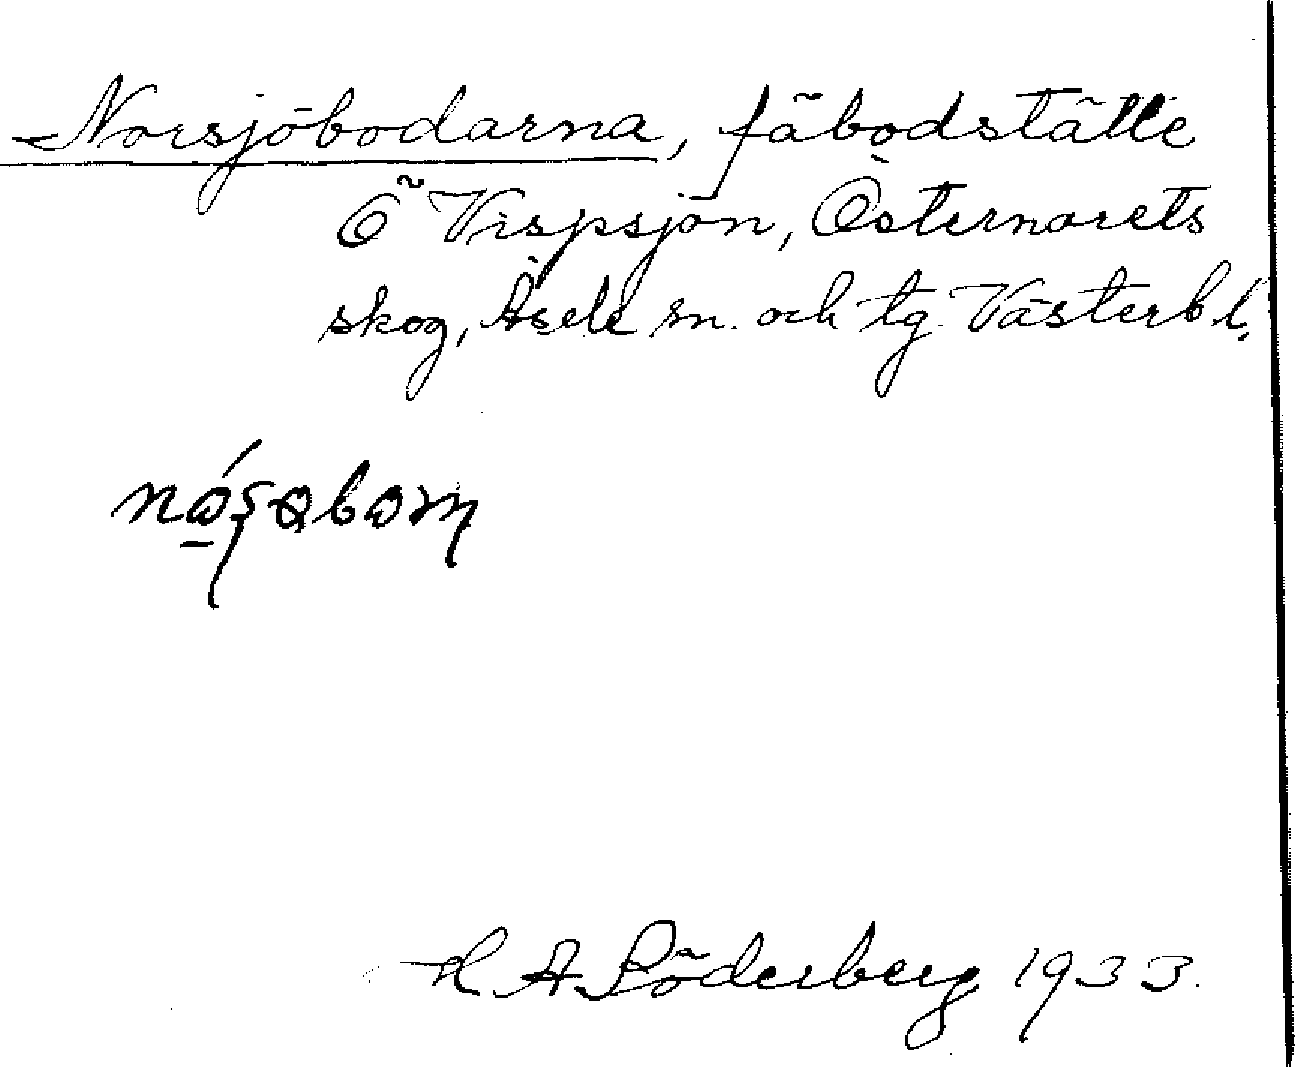 Norsjöbodarna, fäbodställe
Ö Vispsjön, Östernorets
skog, Åsele sn. och tg. Västerb l.
H A Söderberg 1933.